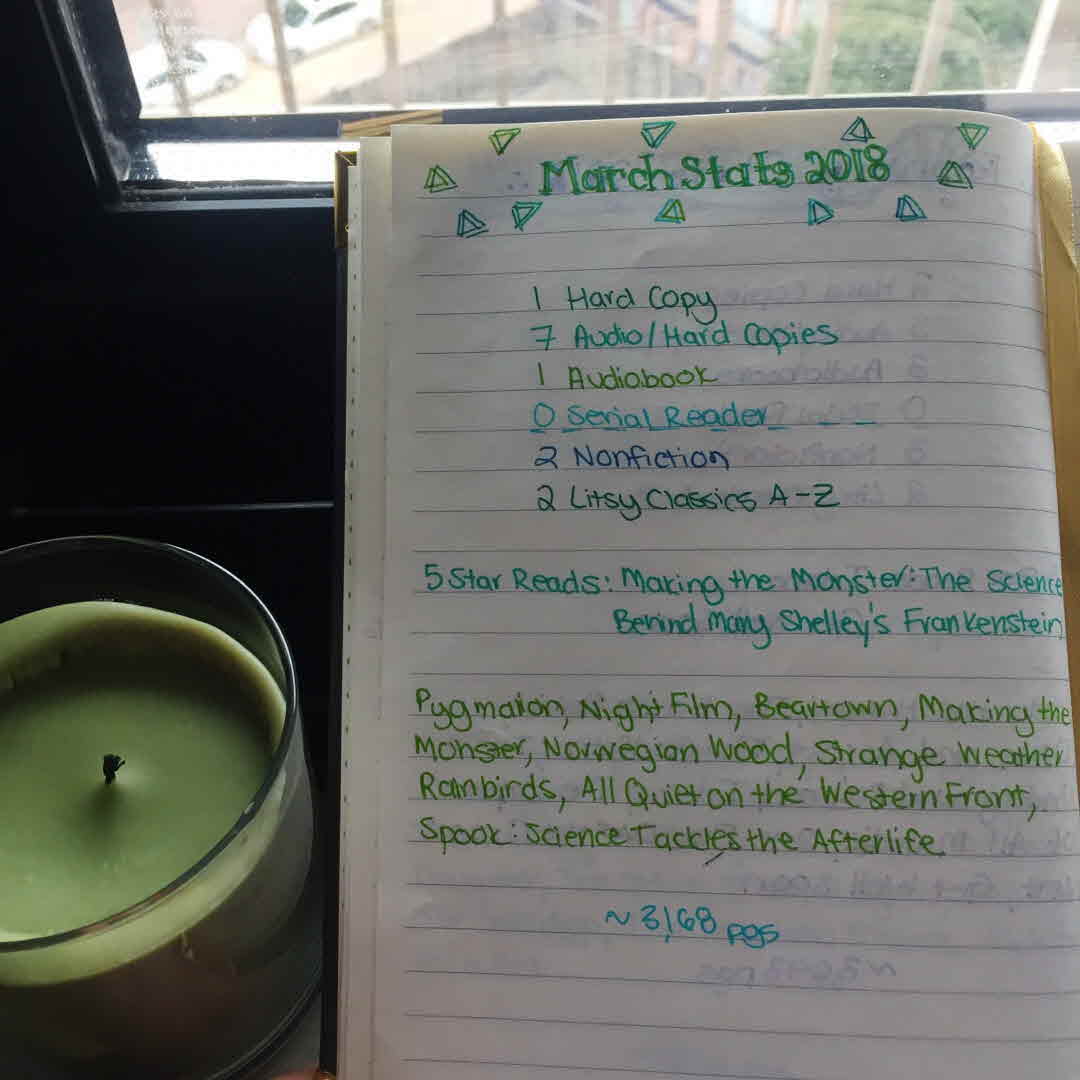 March Stats 2018
1 Hard Copy
7 Audio/Hard Copies
1 Audiobook
0 Serial Reader
2 Nonfiction
2 Litsy Classics A-Z
5 Star Reads: Making the Monster: The Science
Behind Mary Shelley's Frankenstein
Pygmalion, Night Film, Beartown, Making the
Monster, Norwegian Wood, Strange Weather
Rainbirds, All Quiet on the Western Front,
Spook: Science Tackles the Afterlife
~ 3,168 pgs